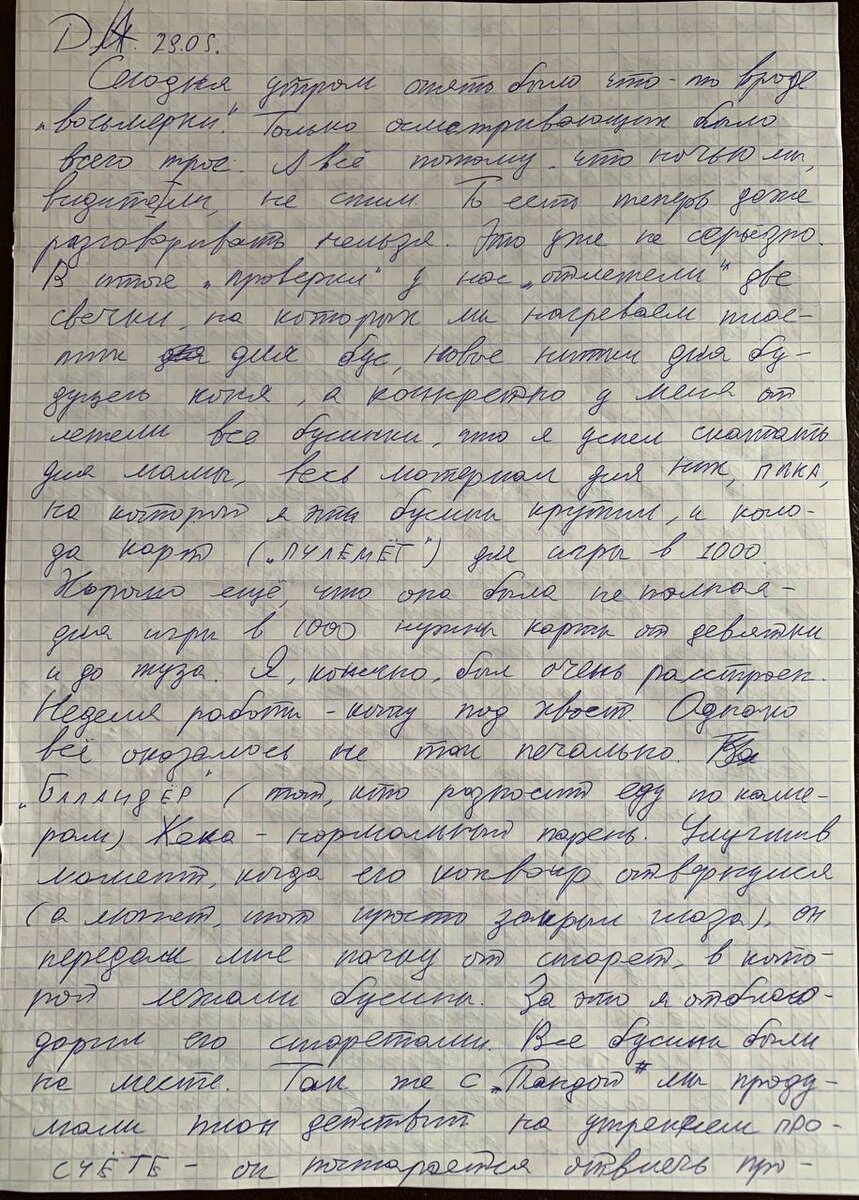 29.05.
Сегодня утром опять было что-то вроде
"восьмерки". Только осматривающих было
всего трое. А всё потому, что ночью мы,
видите ли, не спим. То есть теперь даже
разговаривать нельзя. Это уже не серьезно.
В итоге "проверки" у нас "отлетели" две
свечки, на которых мы нагреваем плас-
тик для бус, новые нитки для бу-
дущего коня, а конкретно у меня от
летели все бусинки, что я успел скатать
для мамы, весь материал для них, ПИКА,
на которой я эти бусины крутил, и коло-
да карт ("ПУЛЕМЁТ") для игры в 1000.
Хорошо ещё, что она была не полная -
для игры в 1000 нужны карты от девятки
и до туза. Я, конечно, был очень расстроен.
Неделя работы - коту под хвост. Однако
всё оказалось не так печально.
"БАЛАНДЁР" (тот, кто разносит еду по каме-
рам) - нормальный парень. Улучшив
момент, когда его конвоир отвернулся
(а может, тот просто закрыл глаза), он
передал мне пачку от сигарет, в кото-
рой лежали бусины. За это я отблаго-
дарил его сигаретами. Все бусины были
на месте. Так же с "Пандой" мы проду-
мали план действий на утреннем ПРО-
СЧЁТЕ - он постарается отвлечь про-